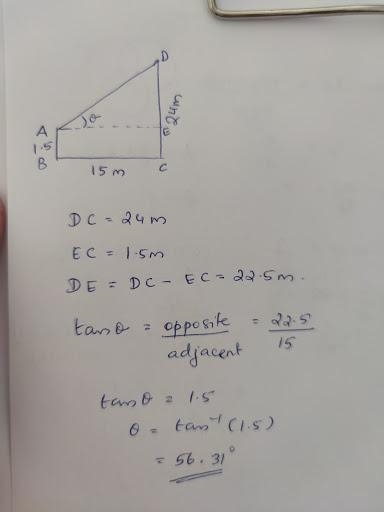 D
24m
A
θ
E
1.5
B
15 m
C
DC = 24m
EC = 1.5m
DE = DC - EC = 22.5m.
tanθ = opposite/adjacent = 22.5/15
tanθ = 1.5
θ = tan⁻¹ (1.5)
= 56.31°